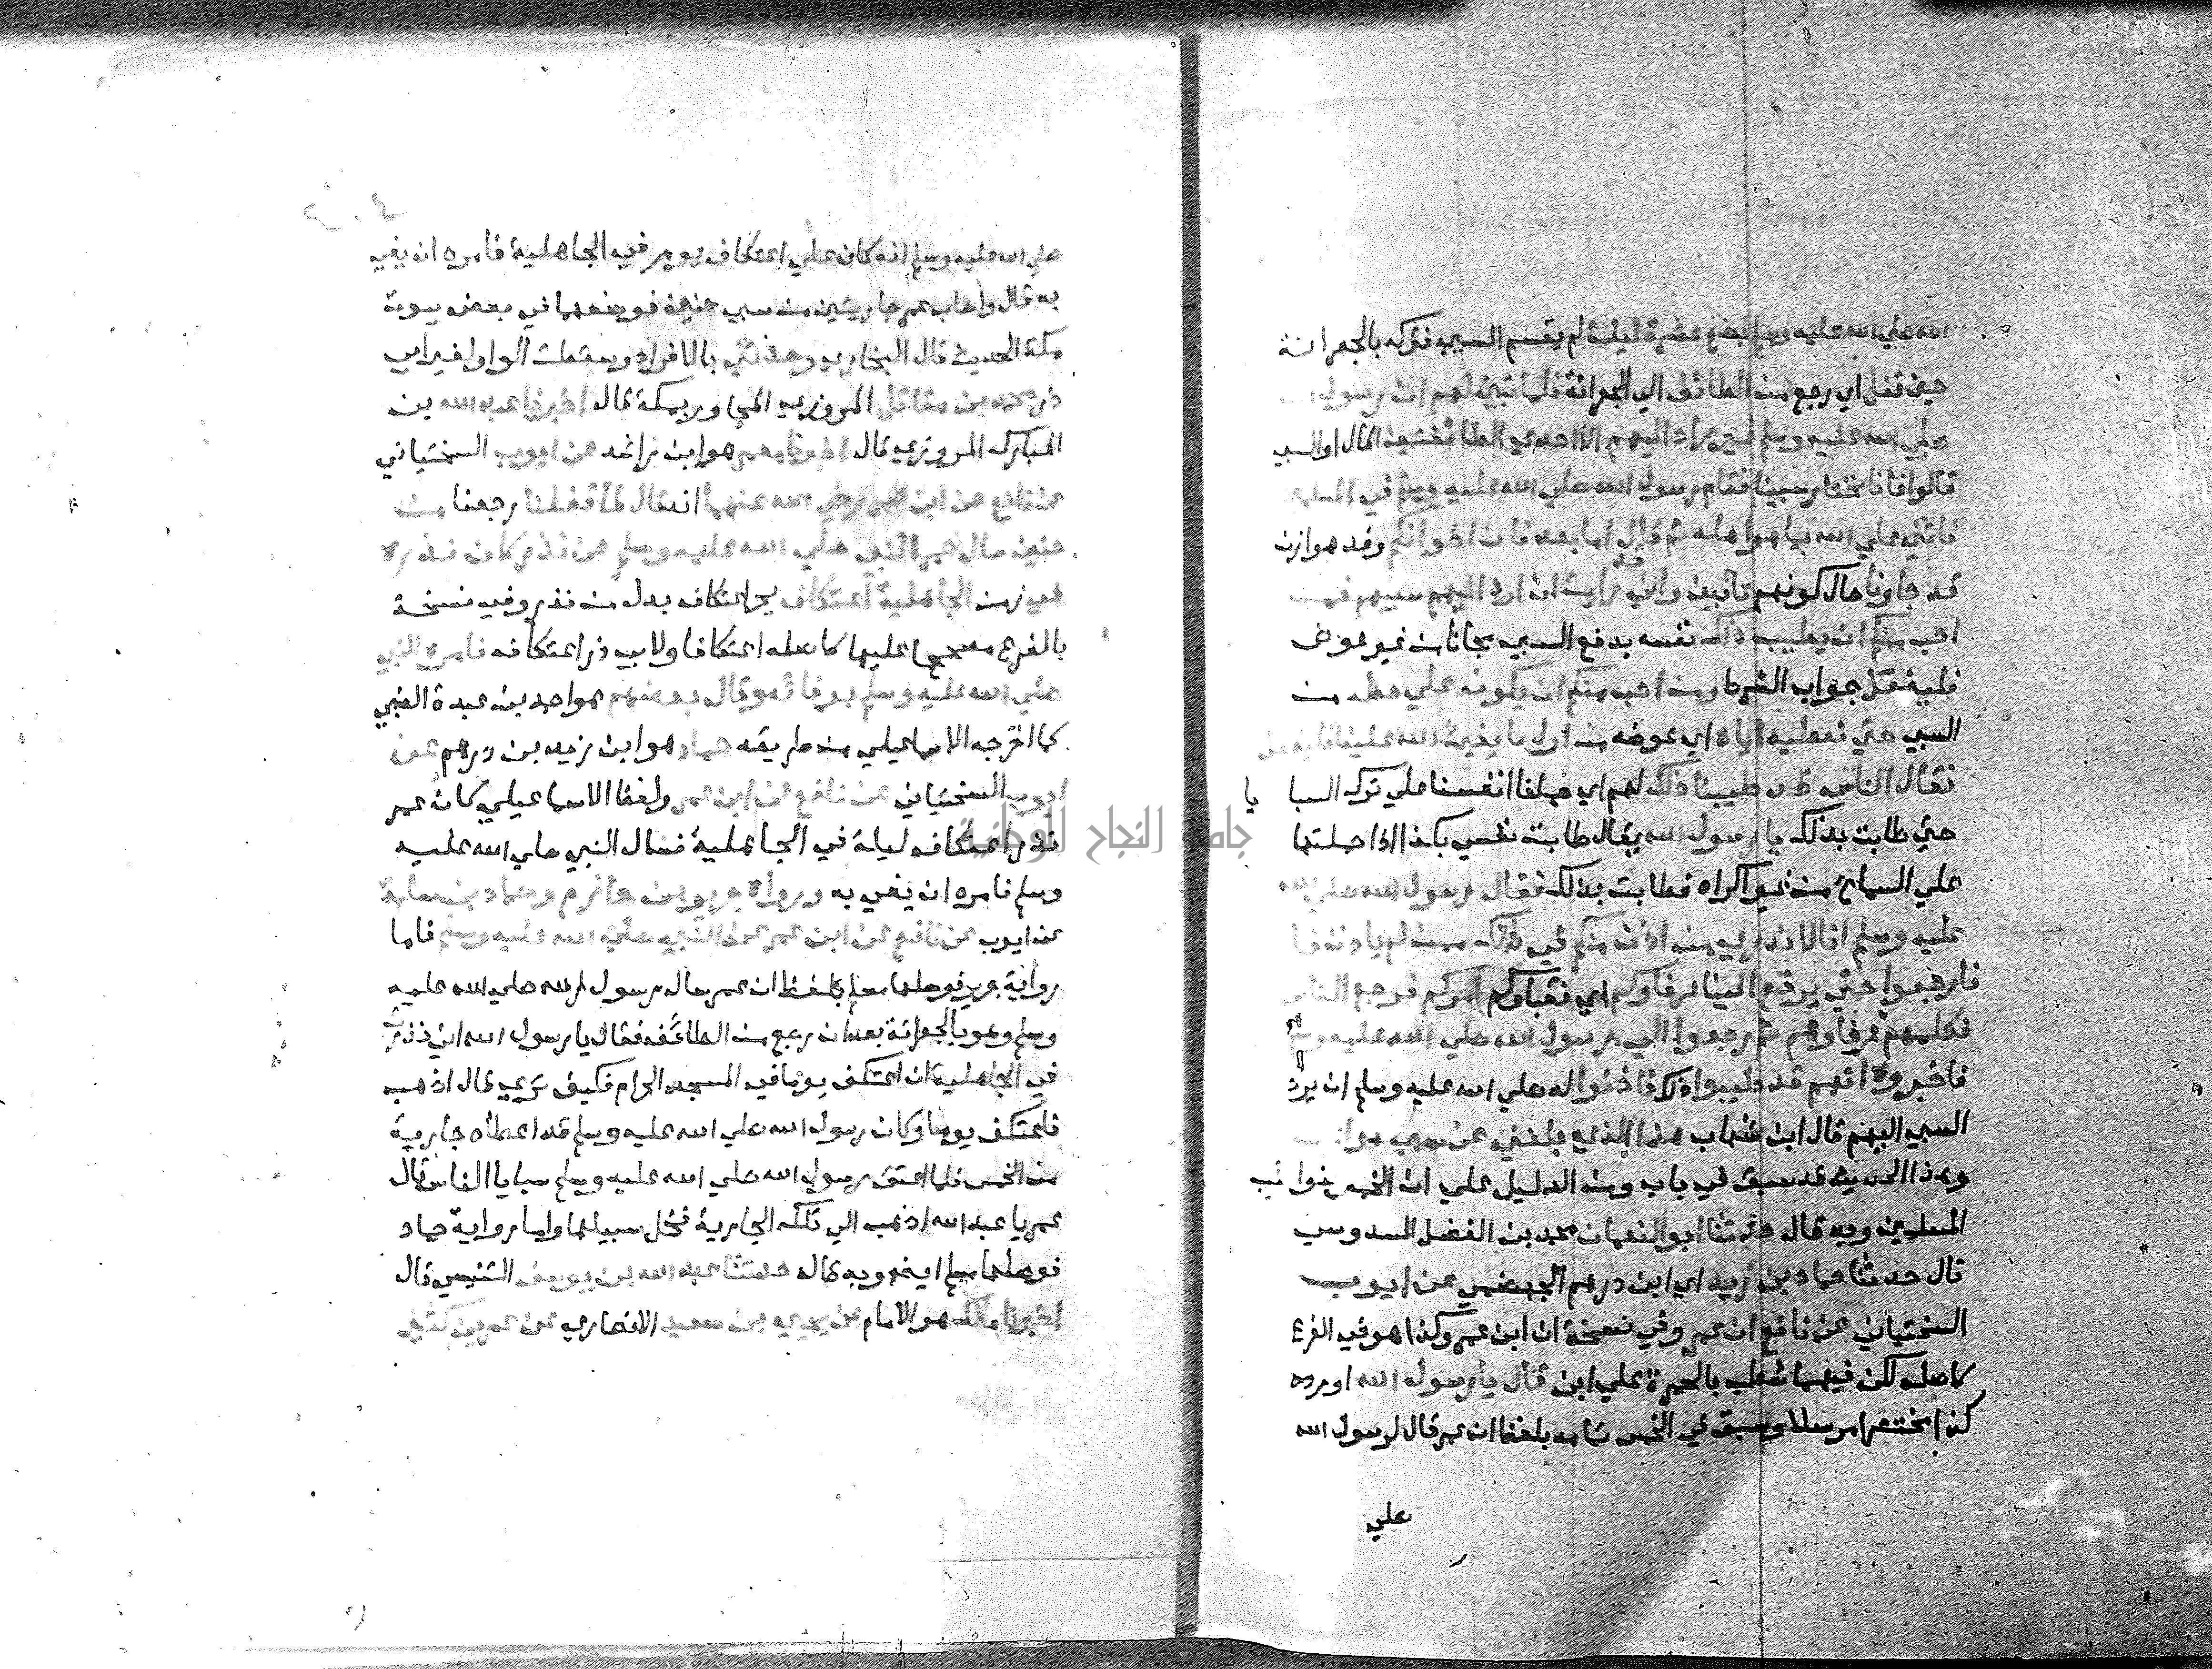 الله صلي الله عليه وسلم بضع عشرة ليلة لم يقسم السبي فتركه بالجعرانة
حين قفل اي رجع من الطائف الي الجعرانة فلما تبين لهم ان رسول
صلي الله عليه وسلم غير راد اليهم الا احدي الطائفتين المال او السبي
قالوا فانا نختار سبينا فقام رسول الله صلي الله عليه وسلم في المسلمين
فاثني علي الله بما هو اهله ثم قال اما بعد فان اخوانكم وفد هوازن
قد جاونا حال كونهم تائبين واني قد رايت ان ارد اليهم سبيهم فمن
احب منكم ان يطيب ذلك نفسه بدفع السبي مجانا من غير عوض
فليفعل جواب الشرط ومن احب منكم ان يكون علي حظه من
السبي حتي نعطيه اياه اي عوضه من اول ما يفي الله علينا فليفعل
فقال الناس قد طيبنا ذلك لهم اي حملنا انفسنا علي ترك السبايا
حتي طابت بذلك يا رسول الله يقال طابت نفسي بكذا اذا حملتها
علي السماح من غير اكراه فطابت بذلك فقال رسول الله صلي الله
عليه وسلم انا لا ندري من اذن منكم في ذلك ممن لم ياذن
فارجعوا حتي يرفع الينا عرفاوكم اي نقباوكم امركم فرجع الناس
فكلمهم عرفاوهم ثم رجعوا الي رسول الله صلي الله عليه وسلم
فاخبروه انهم قد طيبوا ذلك فاذنوا له صلي الله عليه وسلم ان يرد
السبي اليهم قال ابن شهاب هذا الذي بلغني عن سبي هوازن
وهذا الحديث قد سبق في باب ومن الدليل علي ان الخمس لنوائب
المسلمين وبه قال حدثنا ابو النعمان محمد بن الفضل السدوسي
قال حدثنا حماد بن زيد اي ابن درهم الجهضمي عن ايوب
السختياني عن نافع ان عمر وفي نسخة ان ابن عمر وكذا هو في الفرع
كاصله لكن فيهما شطب بالحمرة علي ابن قال يا رسول الله اورده
كذا مختصرا مرسلا وسبق في الخمس تمامه بلفظ ان عمر قال لرسول الله
علي
صلي الله عليه وسلم انه كان علي اعتكاف يوم في الجاهلية فامره ان يفي
به قال واصاب عمر جاريتين من سبي حنين فوضعهما في بعض بيوت
مكة الحديث قال البخاري وحدثني بالافراد وسقطت الواو لغير ابي
ذر محمد بن مقاتل المروزي المجاور بمكة قال اخبرنا عبد الله بن
المبارك المروزي قال اخبرنا معمر هو ابن راشد عن ايوب السختياني
عن نافع عن ابن عمر رضي الله عنهما انه قال لما قفلنا رجعنا من
حنين سال عمر النبي صلي الله عليه وسلم عن نذر كان نذره
في زمن الجاهلية اعتكاف بجر اعتكاف بدل من نذر وفي نسخة
بالفرع مصححا عليها كاصله اعتكافا ولابي ذر اعتكاف فامره النبي
صلي الله عليه وسلم بوفائه وقال بعضهم هو احمد بن عبدة الضبي
كما اخرجه الاسماعيلي من طريقه حماد هو ابن زيد بن درهم عن
ايوب السختياني عن نافع عن ابن عمر ولفظ الاسماعيلي كان عمر
نذر اعتكاف ليلة في الجاهلية فسال النبي صلي الله عليه
وسلم فامره ان يفي به ورواه جرير بن حازم وحماد بن سلمة
عن ايوب عن نافع عن ابن عمر عن النبي صلي الله عليه وسلم فاما
رواية جرير فوصلها مسلم بلفظ ان عمر سال رسول الله صلي الله عليه
وسلم وهو بالجعرانة بعد ان رجع من الطائف فقال يا رسول الله اني نذرت
في الجاهلية ان اعتكف يوما في المسجد الحرام فكيف تري قال اذهب
فاعتكف يوما وكان رسول الله صلي الله عليه وسلم قد اعطاه جارية
من الخمس فلما اعتق رسول الله صلي الله عليه وسلم سبايا الناس قال
عمر يا عبد الله اذهب الي تلك الجارية فخل سبيلها واما رواية حماد
فوصلها مسلم ايضا وبه قال حدثنا عبد الله بن يوسف التنيسي قال
اخبرنا مالك هو الامام عن يحيي بن سعيد الانصاري عن عمر بن كثير
جامعة النجاح الوطنية